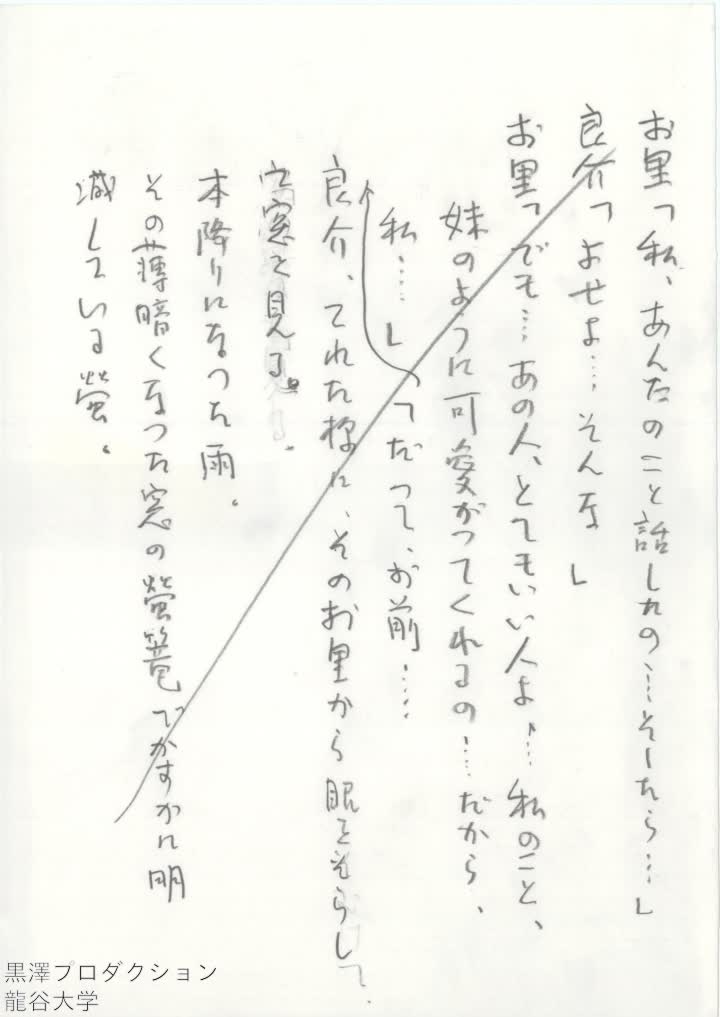 お里「私、あんたのこと話したの…そしたら…」
良介「よせよ…そんな」
お里「でも…あの人、とてもいい人よ…私のこと、
妹のように可愛がってくれるの…だから、
私……」
「だって、お前……
良介、てれた様に、そのお里から眼をそらして、
窓を見る。
本降りになった雨。
その薄暗くなった窓の螢篭でかすかに明
滅している螢。
黒澤プロダクション
龍谷大学